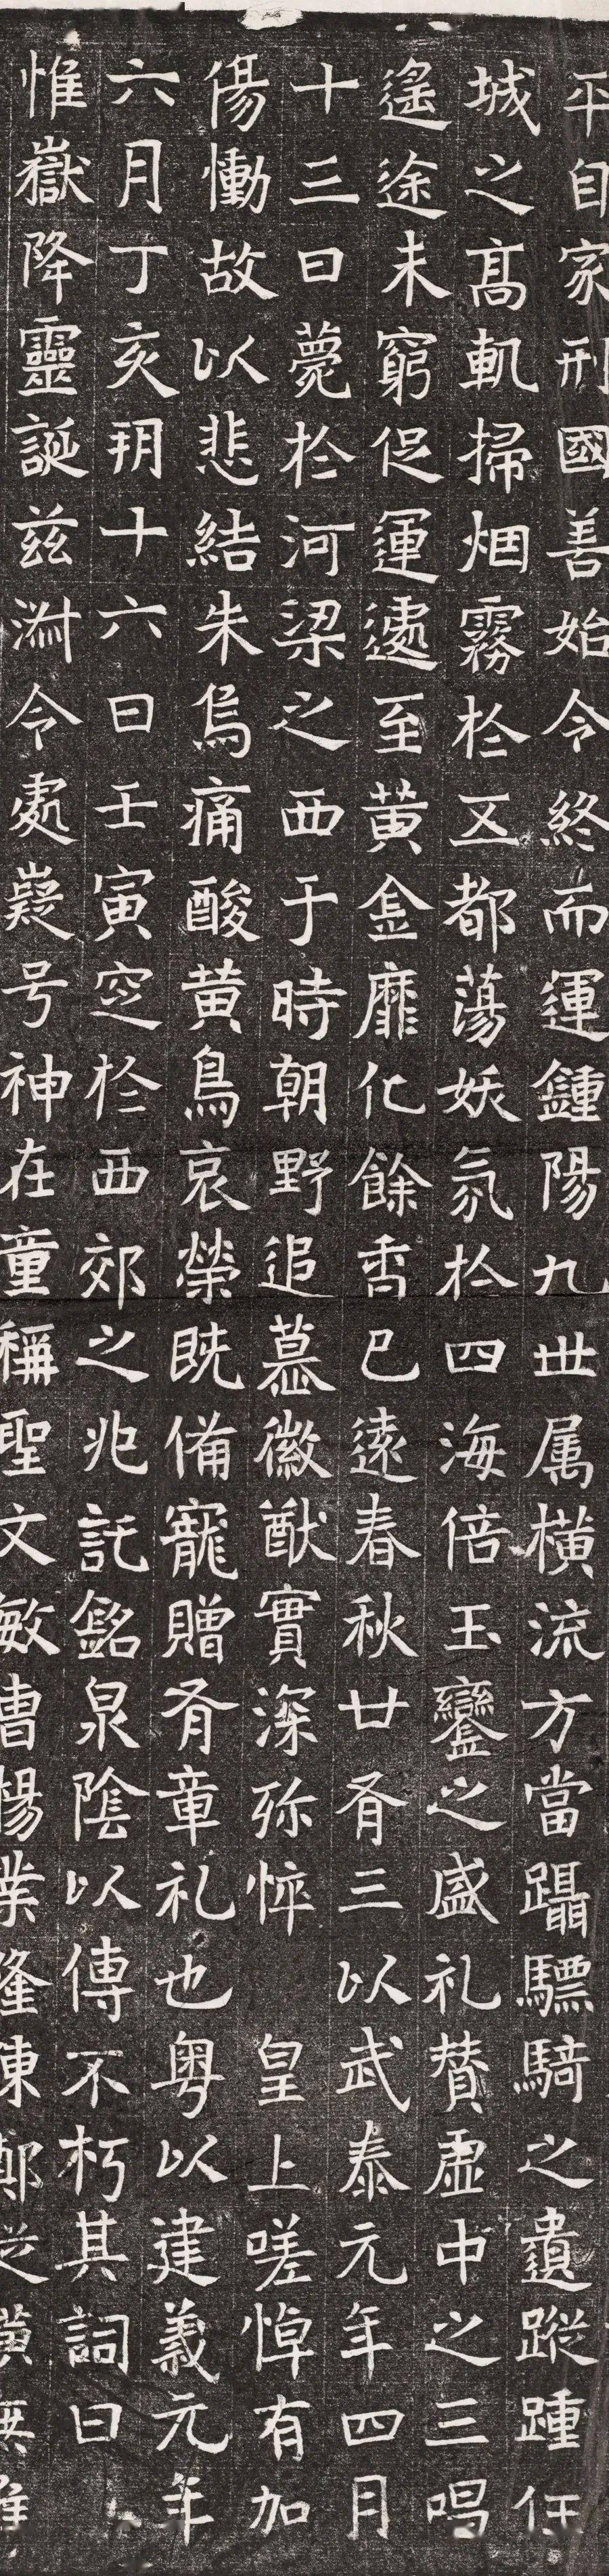 平自家刑國善始令終而運鍾陽九世属橫流方當躡驃騎之遺蹤踵任
城之高軌掃烟霧於五都蕩妖氛於四海倍玉鑾之盛礼賛虛中之三唱
遙途未窮促運遽至黃金靡化餘香已遠春秋廿有三以武泰元年四月
十三日薨於河梁之西于時朝野追慕徽猷實深弥悴皇上嗟悼有加
傷慟故以悲結朱烏痛酸黃鳥哀榮既備寵贈有章礼也粵以建義元年
六月丁亥朔十六日壬寅窆於西郊之兆託銘泉陰以傳不朽其詞曰
惟嶽降靈誕茲淵令處嶷号神在童稱聖文敏曹楊業隆陳鄭